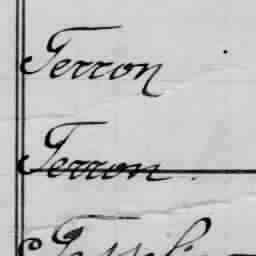 Terron
Terron